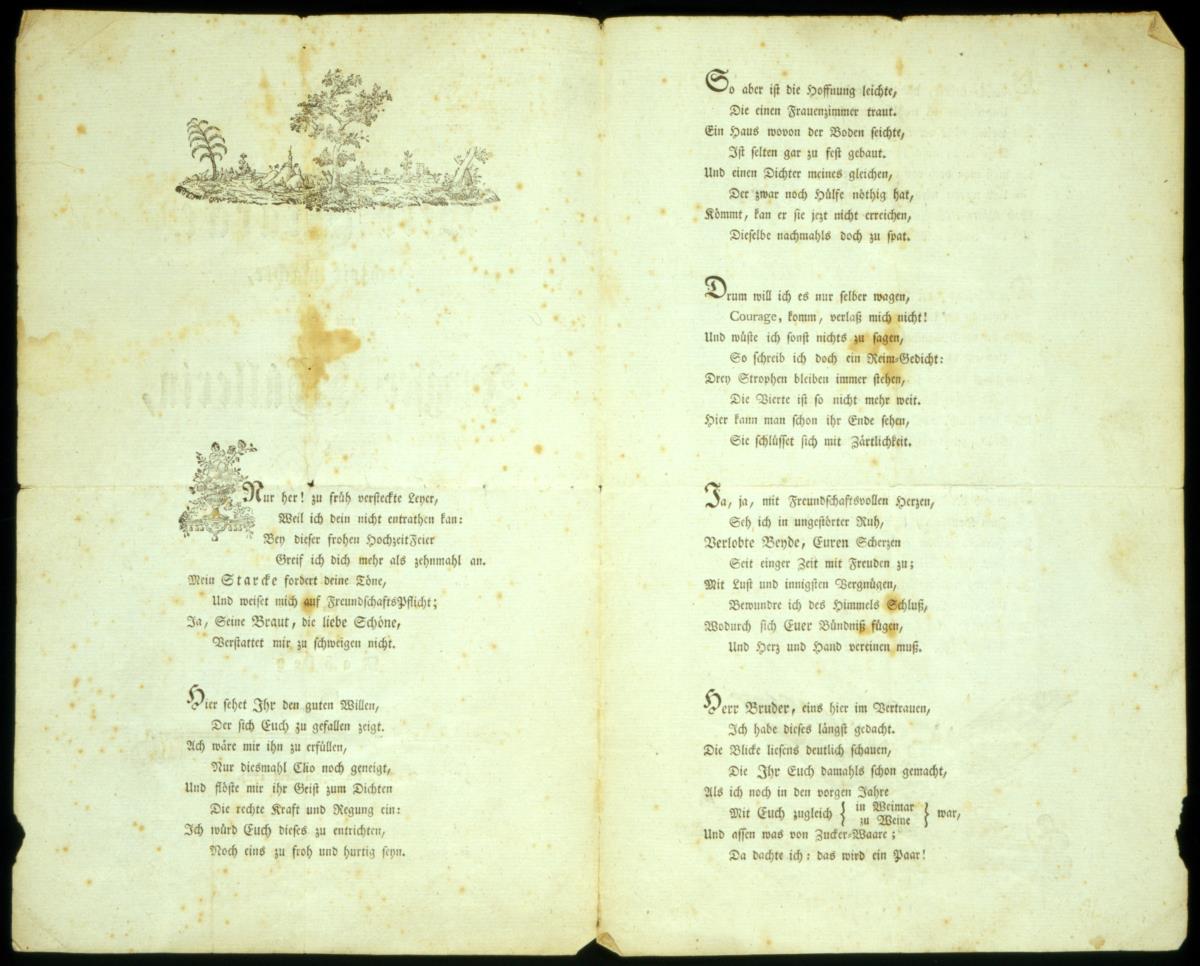 Nur her! zu früh versteckte Leyer,
Weil ich dein nicht entrathen kan:
Bey dieser frohen HochzeitFeier
Greif ich dich mehr als zehnmahl an.
Mein Starcke fordert deine Töne,
Und weiset mich auf FreundschaftsPflicht;
Ja, Seine Braut, die liebe Schöne,
Verstattet mir zu schweigen nicht.
Hier sehet Ihr den guten Willen,
Der sich Euch zu gefallen zeigt.
Ach wäre mir ihn zu erfüllen,
Nur diesmahl Clio noch geneigt,
Und flöste mir ihr Geist zum Dichten
Die rechte Kraft und Regung ein:
Ich würd Euch dieses zu entrichten,
Noch eins zu froh und hurtig seyn.
So aber ist die Hoffnung leichte,
Die einen Frauenzimmer traut.
Ein Haus wovon der Boden seichte,
Ist selten gar zu fest gebaut.
Und einen Dichter meines gleichen,
Der zwar noch Hülfe nöthig hat,
Kömmt, kan er sie jezt nicht erreichen,
Dieselbe nachmahls doch zu spat.
Drum will ich es nur selber wagen,
Courage, komm, verlaß mich nicht!
Und wüste ich sonst nichts zu sagen,
So schreib ich doch ein Reim-Gedicht:
Drey Strophen bleiben immer stehen,
Die Vierte ist so nicht mehr weit.
Hier kann man schon ihr Ende sehen,
Sie schlüsset sich mit Zärtlichkeit.
Ja, ja, mit Freundschaftsvollen Herzen,
Seh ich in ungestörter Ruh,
Verlobte Beyde, Euren Scherzen
Seit einger Zeit mit Freuden zu;
Mit Lust und innigsten Vergnügen,
Bewundre ich des Himmels Schluß,
Wodurch sich Euer Bündniß fügen,
Und Herz und Hand vereinen muß.
Herr Bruder, eins hier im Vertrauen,
Ich habe dieses längst gedacht.
Die Blicke liesens deutlich schauen,
Die Ihr Euch damahls schon gemacht,
Als ich noch in den vorgen Jahre
Mit Euch zugleich { in Weimar zu Weine } war,
Und assen was von Zucker-Waare;
Da dachte ich: das wird ein Paar!